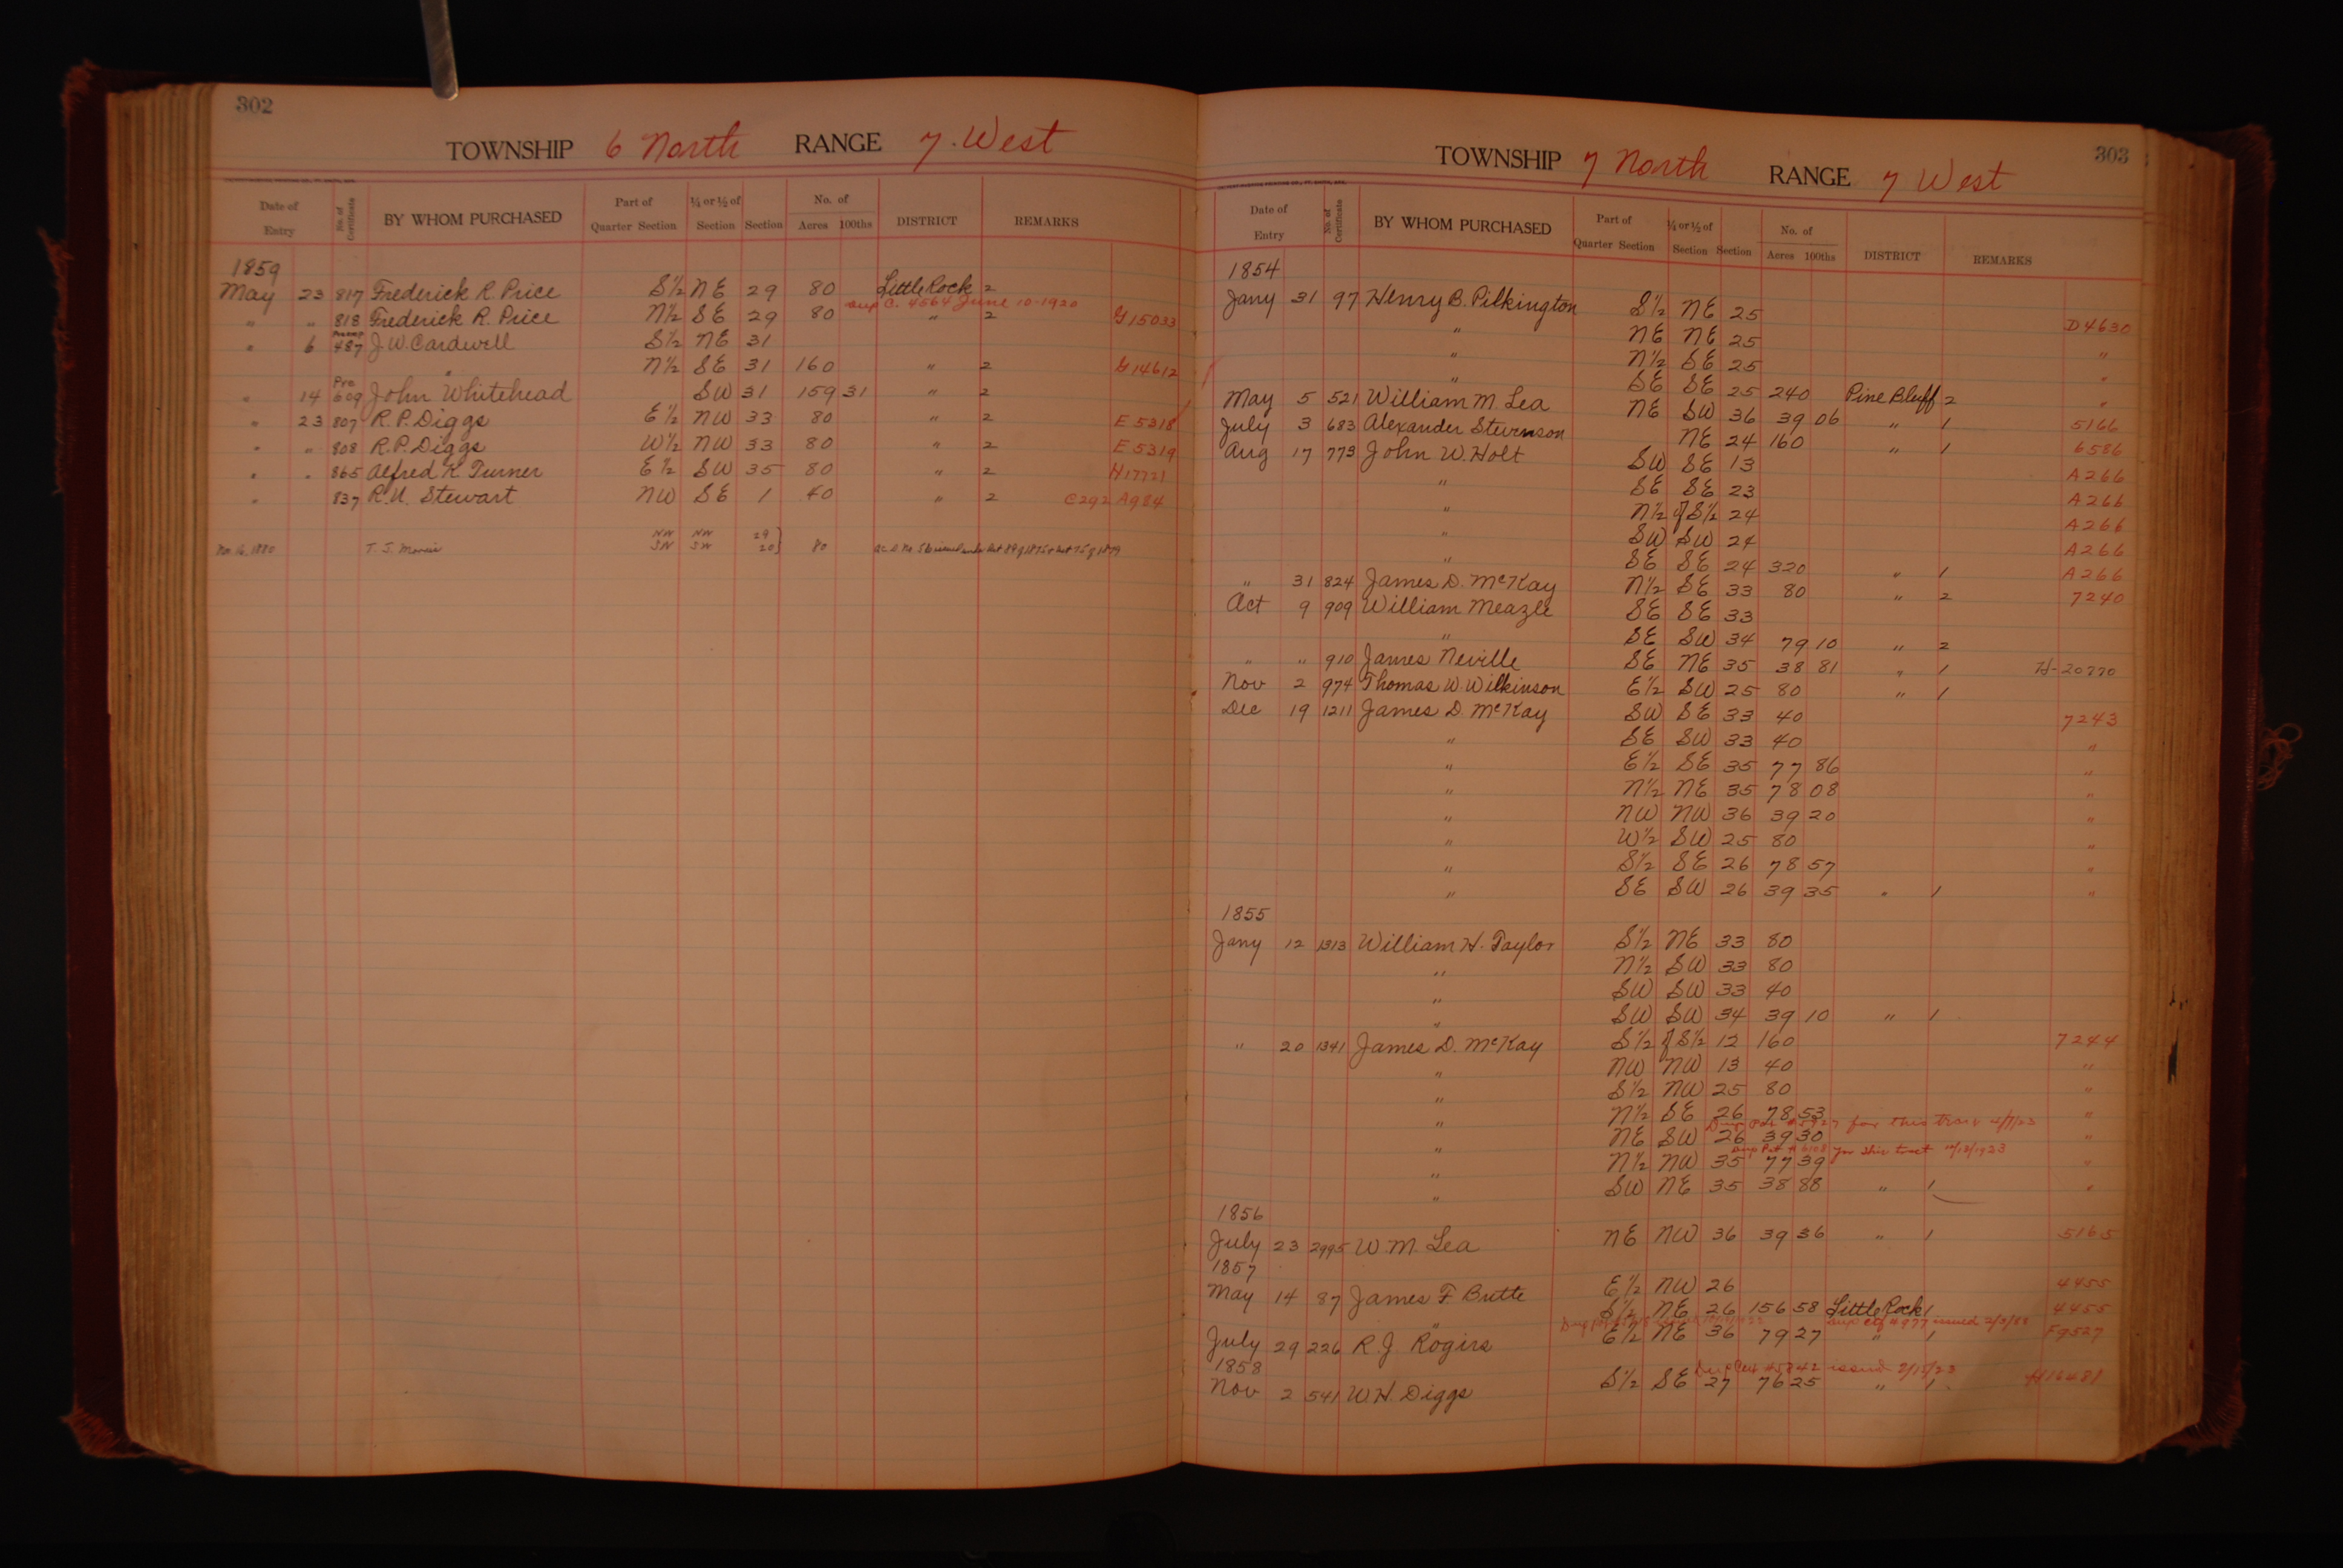 302
TOWNSHIP 6 North RANGE 7. West
Date of Entry No. of Certificate BY WHOM PURCHASED Part of Quarter Section ¼ or ½ of Section Section No. of Acres 100ths DISTRICT REMARKS
1859
May 23 817 Frederick R. Price S½ NE 29 80 Little Rock 2
Dup C. 4564 June 10-1920
" " 818 Frederick R. Price N½ SE 29 80 " 2 G15033
" 6 487 J W. Cardwell S½ NE 31
" N½ SE 31 160 " 2 G14612
" 14 Pre 609 John Whitehead SW 31 159 31 " 2
" 23 807 R. P. Diggs E½ NW 33 80 " 2 E5318
" " 808 R. P. Diggs W½ NW 33 80 " 2 E5319
" " 865 Alfred K. Turner E½ SW 35 80 " 2 H17721
" 837 R. N. Stewart NW SE 1 40 " 2 C292 A984
NW NW 29
16, 1880 T. J. SW SW 20 80
303
TOWNSHIP 7 North RANGE 7 West
Date of Entry No. of Certificate BY WHOM PURCHASED Part of Quarter Section ¼ or ½ of Section Section No. of Acres 100ths DISTRICT REMARKS
1854
Jany 31 97 Henry B. Pilkington S½ NE 25 D4630
" NE NE 25 "
" N½ SE 25 "
" SE SE 25 240 Pine Bluff 2 "
May 5 521 William M. Lea NE SW 36 39 06 " 1 5166
July 3 683 Alexander Stevenson NE 24 160 " 1 6586
Aug 17 773 John W. Holt SW SE 13 A266
" SE SE 23 A266
" N½ of S½ 24 A266
" SW SW 24 A266
" SE SE 24 320 " 1 A266
" 31 824 James D. McKay N½ SE 33 80 " 2 7240
Oct 9 909 William Meazle SE SE 33
" SE SW 34 79 10 " 2
" " 910 James Neville SE NE 35 38 81 " 1 H-20770
Nov 2 974 Thomas W. Wilkinson E½ SW 25 80 " 1
Dec 19 1211 James D. McKay SW SE 33 40 7243
" SE SW 33 40 "
" E½ SE 35 77 86 "
" N½ NE 35 78 08 "
" NW NW 36 39 20 "
" W½ SW 25 80 "
" S½ SE 26 78 57 "
" SE SW 26 39 35 " 1 "
1855
Jany 12 1313 William H. Taylor S½ NE 33 80
" N½ SW 33 80
" SW SW 33 40
" SW SW 34 39 10 " 1
" 20 1341 James D. McKay S½ of S½ 12 160 7244
" NW NW 13 40 "
" S½ NW 25 80 "
" N½ SE 26 78 53 "
for this tract
" NE SW 26 39 30 "
for this tract 10/13/1923
" N½ NW 35 77 39 "
" SW NE 35 38 88 " 1 "
1856
July 23 2995 W. M. Lea NE NW 36 39 36 " 1 5165
1857
May 14 87 James F Butte E½ NW 26 4455
" S½ NE 26 156 58 Little Rock 1 4455
Dup Ctf #977 issued 2/3/88
July 29 226 R. J. Rogirs E½ NE 36 79 27 " 1 F9527
1858
issued 2/15/23
Nov 2 541 W. H. Diggs S½ SE 27 76 25 " 1 H16481